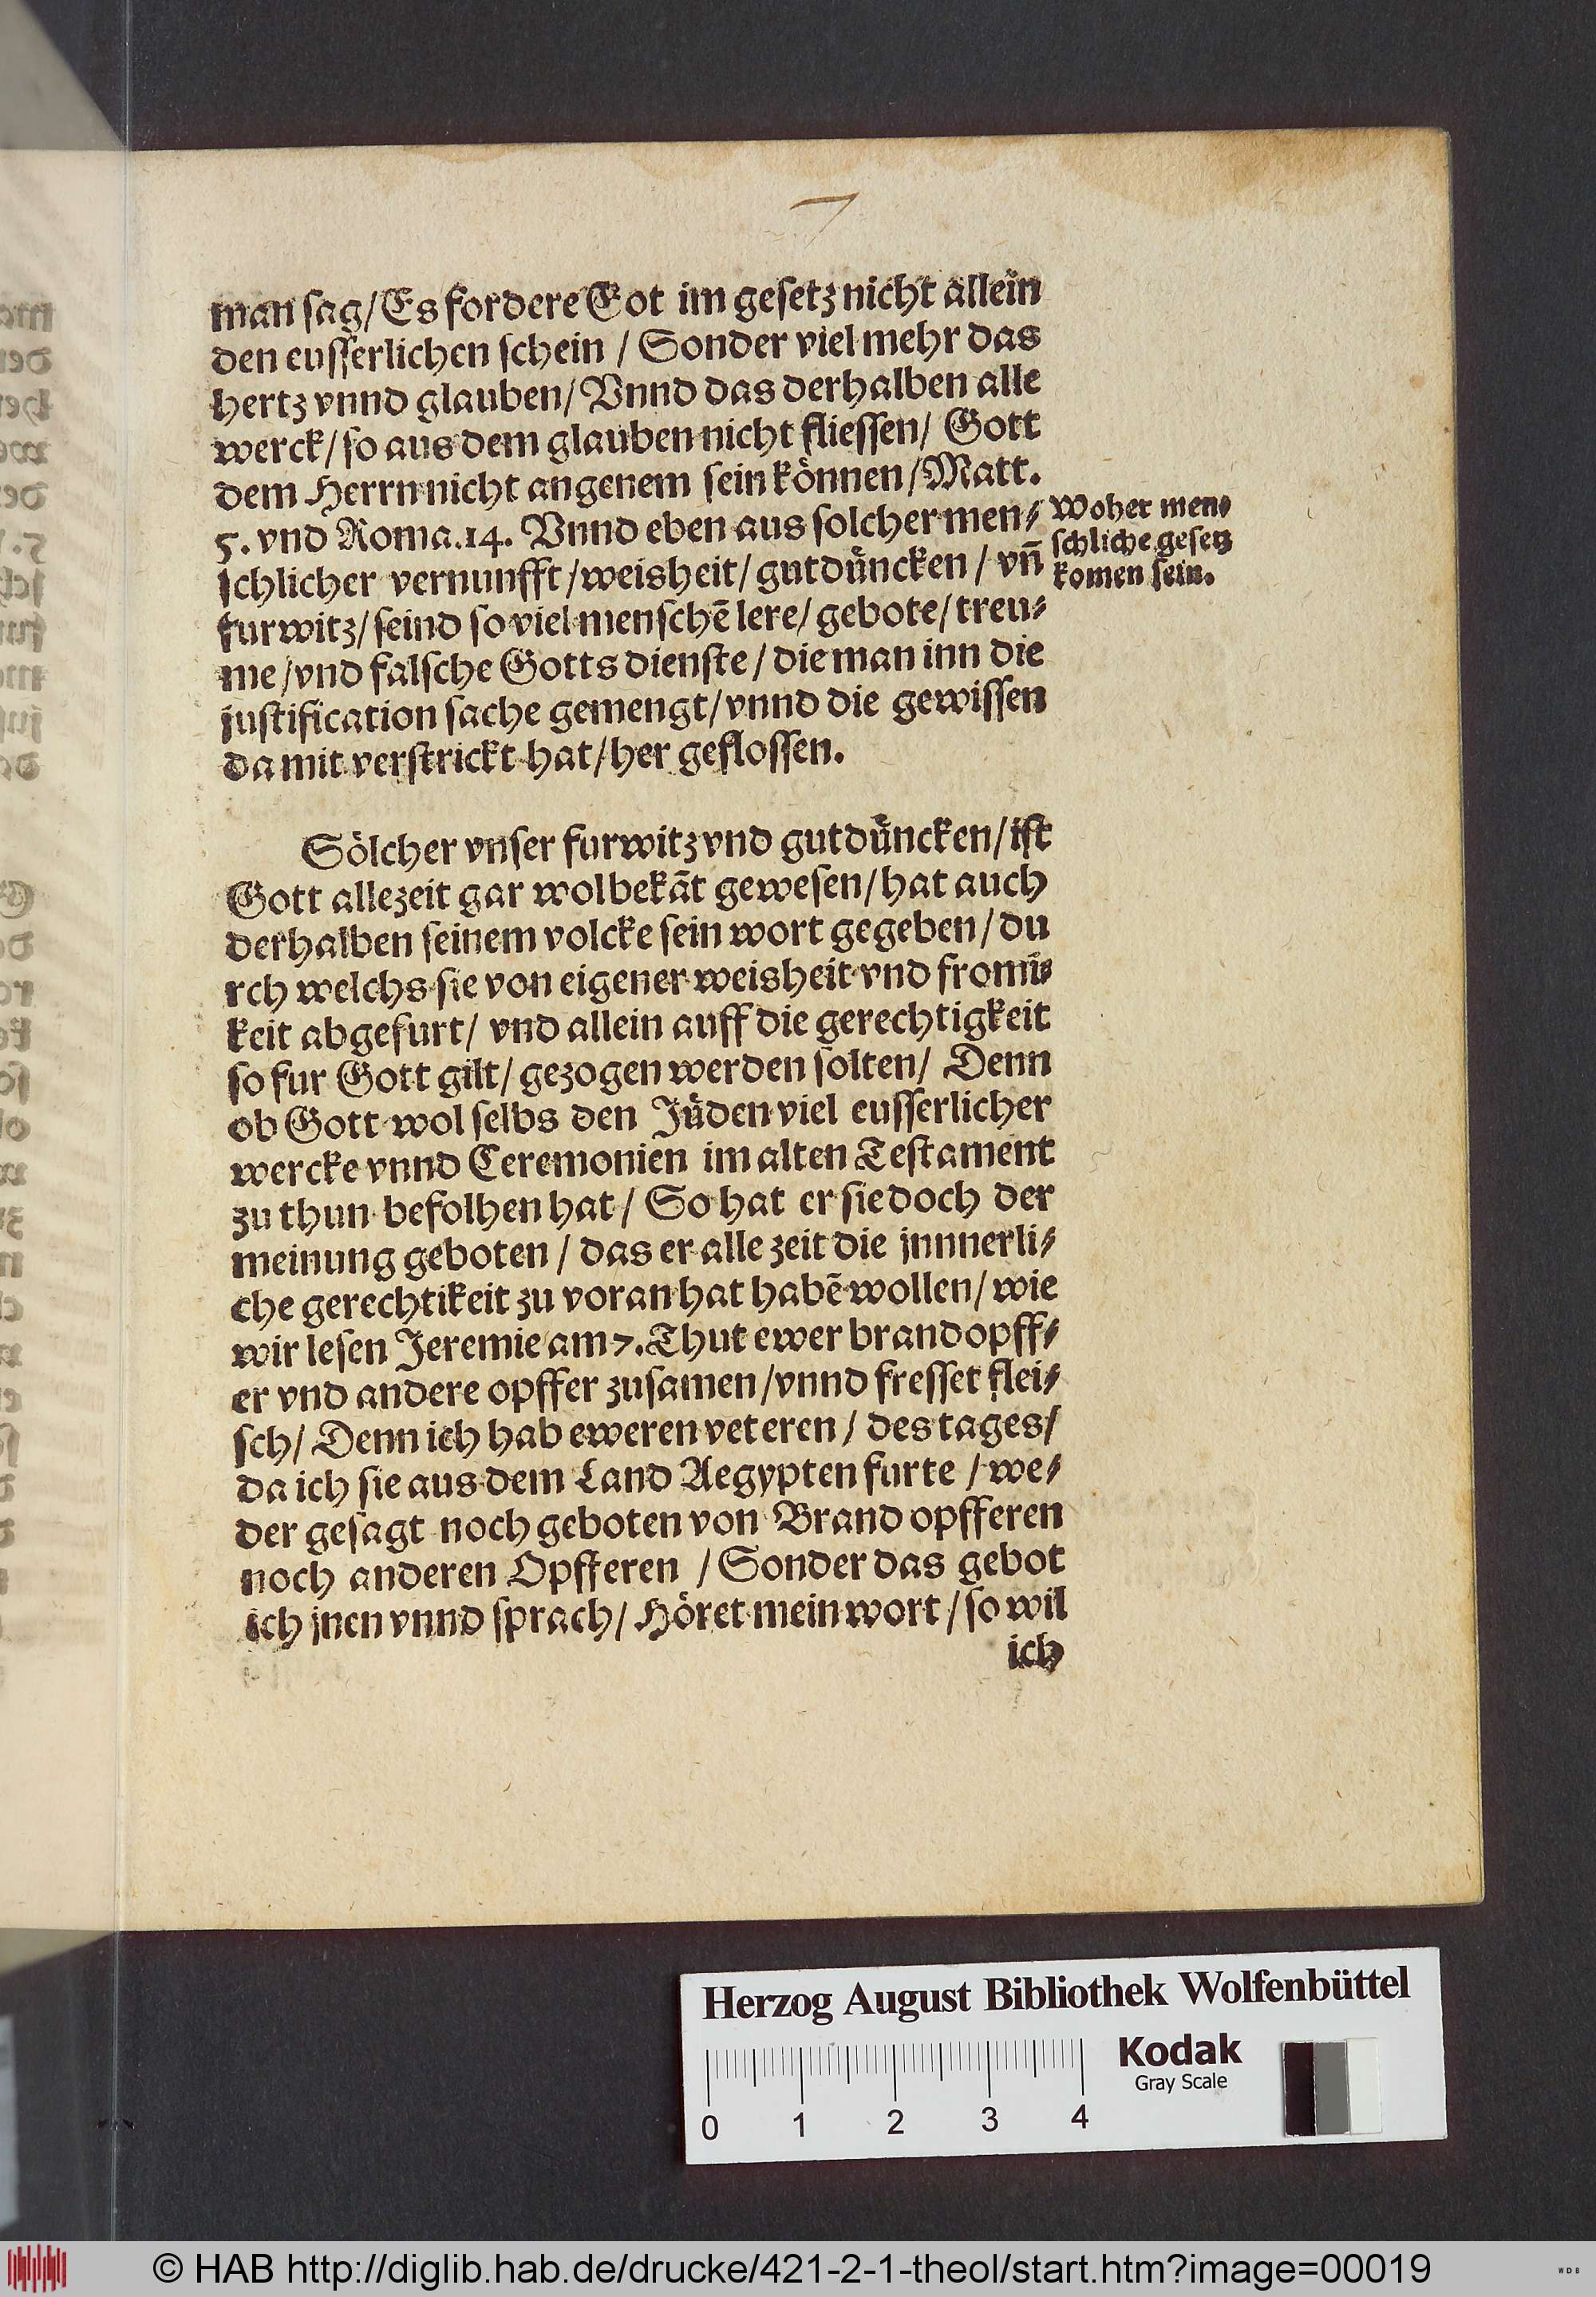 7
man sag/Es fordere Got im gesetz nicht allein
den eusserlichen schein / Sonder viel mehr das
hertz vnnd glauben/ Vnnd das derhalben alle
werck/ so aus dem glauben nicht fliessen/ Gott
dem Herrn nicht angenem sein können /Matt.
5. vnd Roma.14. Vnnd eben aus solcher men⸗
schlicher vernunfft /weisheit/ gutdüncken / vn̄
furwitz/ seind so viel menschē lere/ gebote/ treu⸗
me /vnd falsche Gotts dienste / die man inn die
justification sache gemengt/ vnnd die gewissen
da mit verstrickt hat/ her geflossen.
Woher men⸗
schliche gesetz
komen sein.
Sölcher vnser furwitz vnd gutdüncken/ ist
Gott allezeit gar wol bekāt gewesen/ hat auch
derhalben seinem volcke sein wort gegeben/ du
rch welchs sie von eigener weisheit vnd from̄⸗
keit abgefurt/ vnd allein auff die gerechtigkeit
so fur Gott gilt/ gezogen werden solten/ Denn
ob Gott wol selbs den Jüden viel eusserlicher
wercke vnnd Ceremonien im alten Testament
zu thun befolhen hat / So hat er sie doch der
meinung geboten / das er alle zeit die jnnnerli⸗
che gerechtikeit zu voran hat habē wollen/ wie
wir lesen Jeremie am 7. Thut ewer brandopff⸗
er vnd andere opffer zusamen /vnnd fresset flei⸗
sch/ Denn ich hab eweren veteren / des tages/
da ich sie aus dem Land Aegypten furte / we⸗
der gesagt noch geboten von Brand opfferen
noch anderen Opfferen / Sonder das gebot
ich jnen vnnd sprach/ Höret mein wort / so wil
ich
Herzog August Bibliothek Wolfenbüttel
Kodak
Gray Scale
0 1 2 3 4
© HAB http://diglib.hab.de/drucke/421-2-1-theol/start.htm?image=00019
WDB